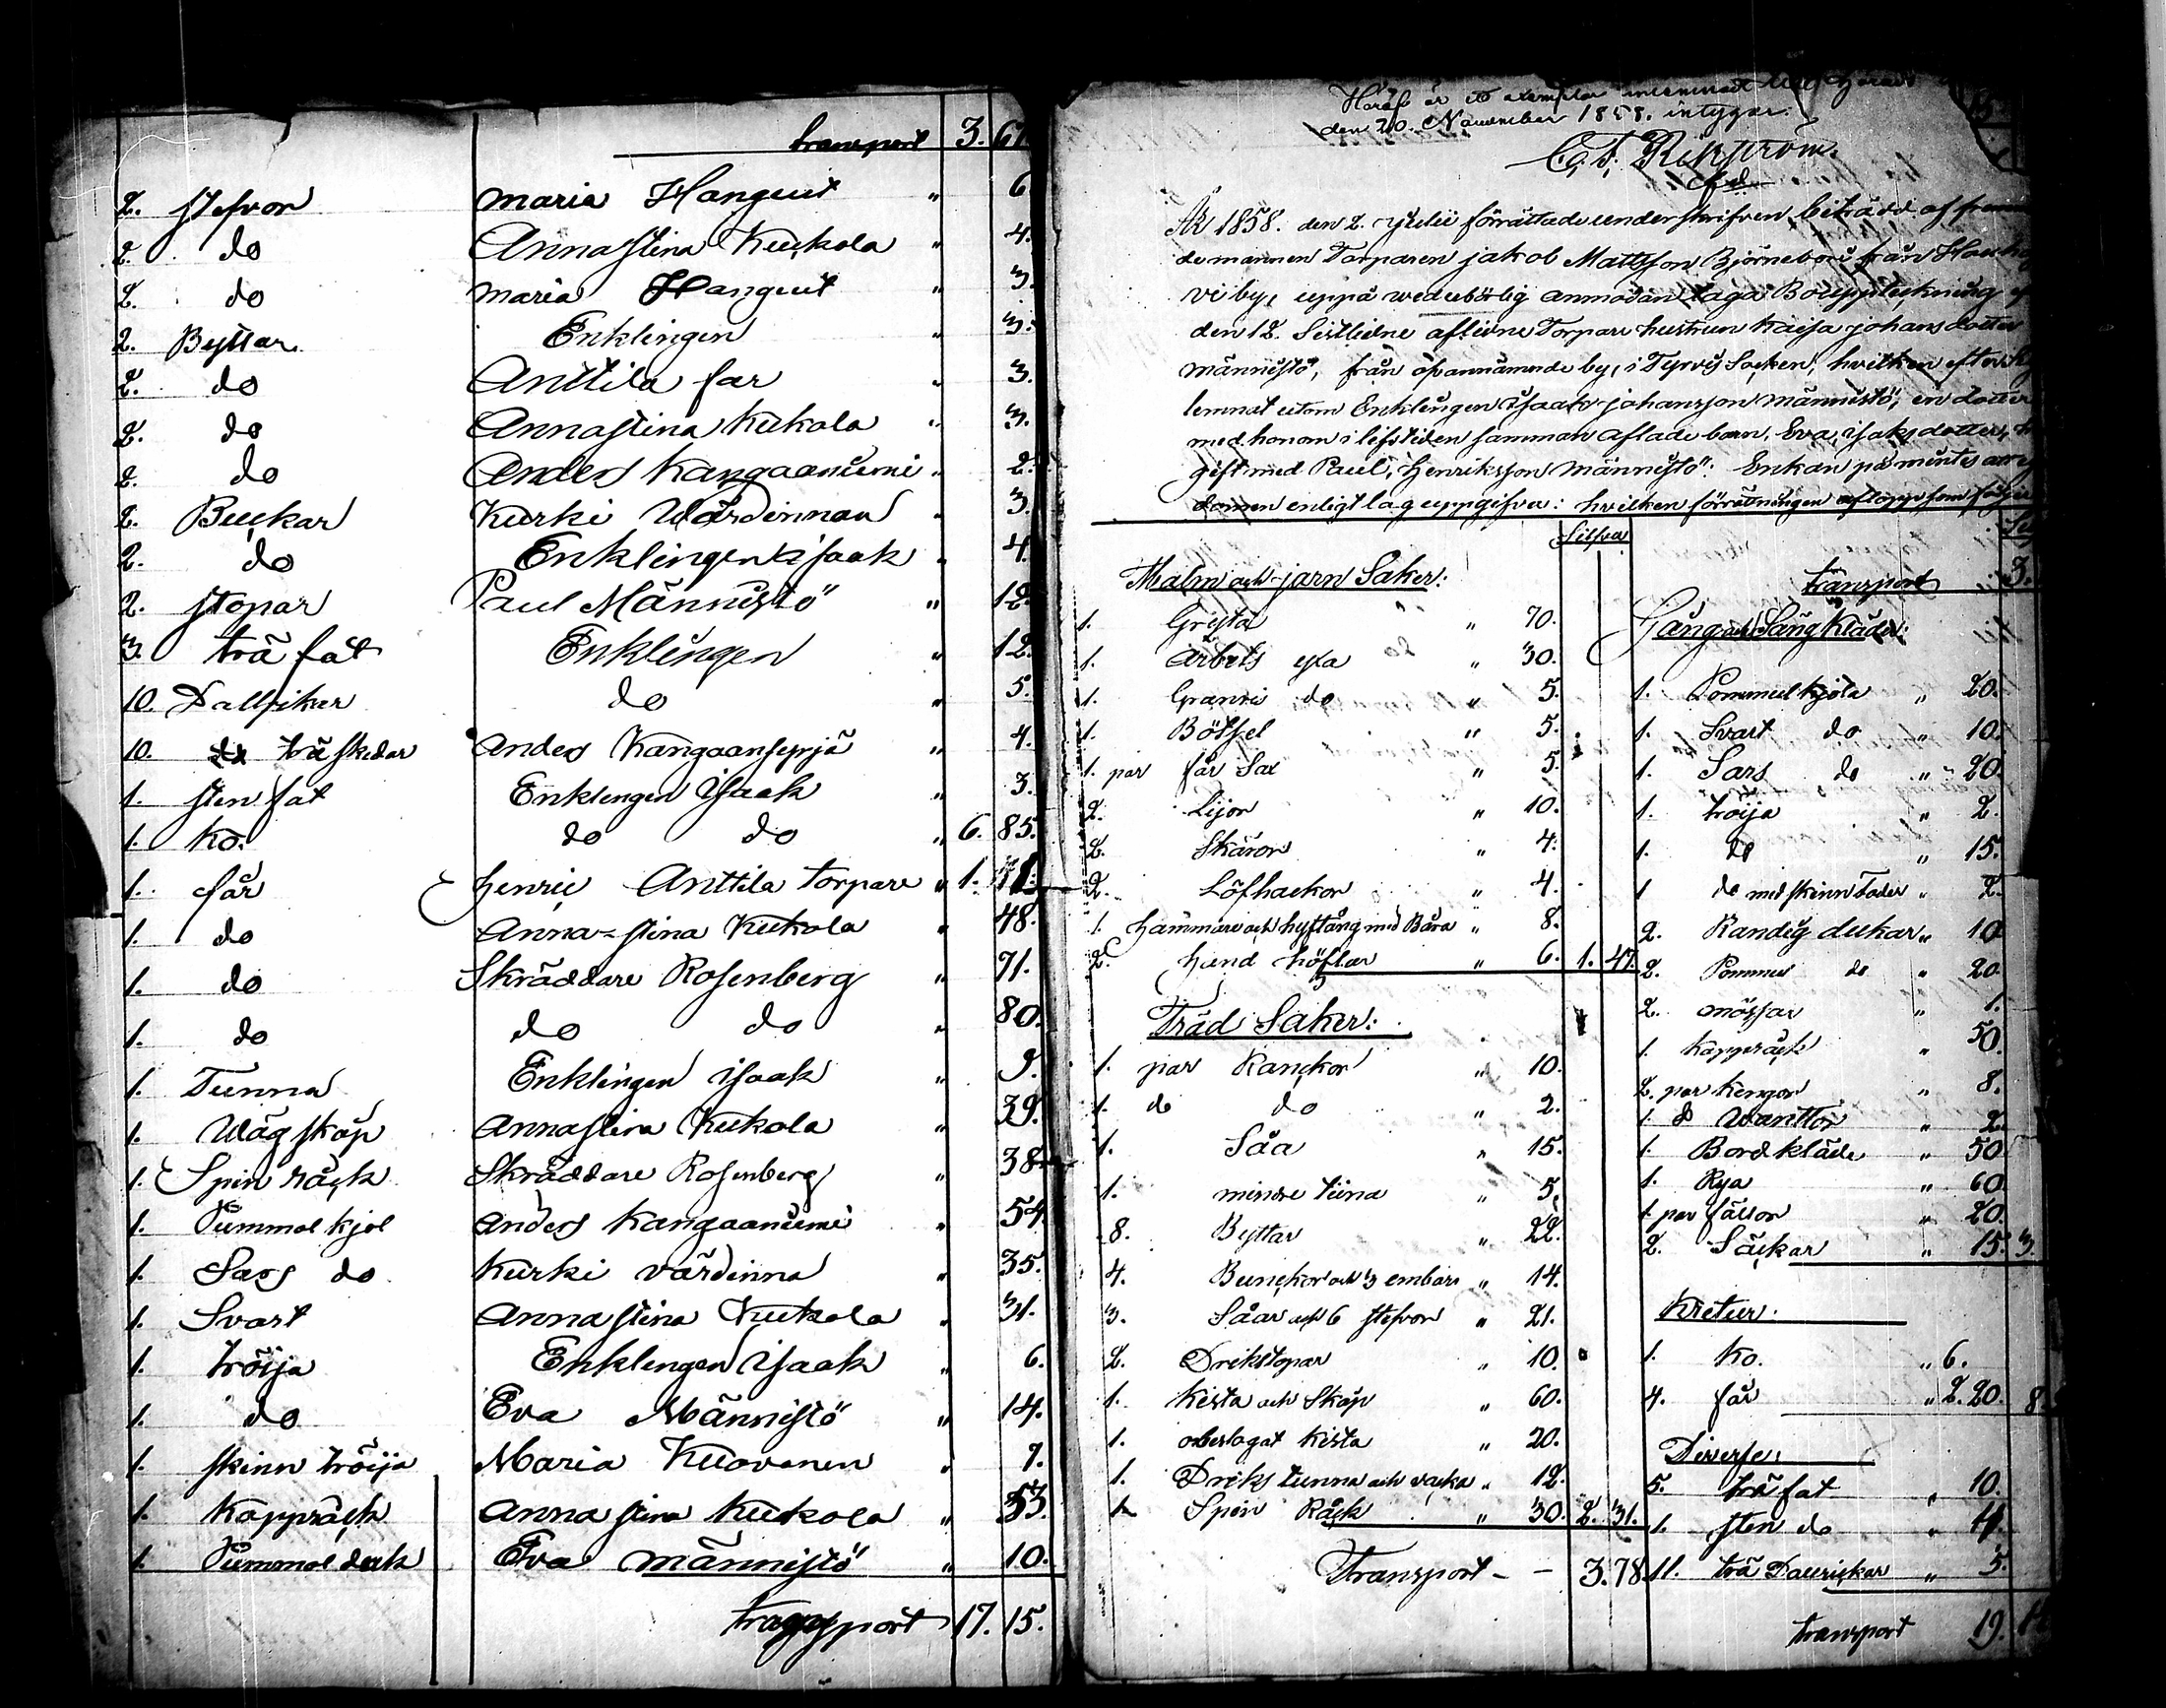 transport 3. 67.
2. stefvor maria Hanquit " 6
2. do Annastina Kuckola " 4.
2. do maria Hanquit " 3.
2. Byttar Enklingen " 3.
2. do Anttila far " 3.
2. do Annastina Kukola " 3.
2. do Anders Kangaanumi " 2.
2. Buckar Kurki Wärdinnan " 3.
2. do Enklingen isaak " 4.
2. stopar Paul Männistö " 12.
3. trä fat Enklingen " 12.
10. Dallrikar do " 5.
10. trä skedar Anders Kangaansyrjä " 4.
1. sten fat Enklengen isaak " 3.
1. Ko. do do " 6. 85.
1. får Henric Anttila torpare " 1.
1. do Anna-stina Kukola " 48.
1. do Skräddare Rosenberg " 71.
1. do do do " 80.
1. Tunna Enklingen isaak " 9.
1. Wäg skåp Annastina Kukola 39.
1. Spin råck Skräddare Rosenberg " 38
1. Pummol kjol Anders Kangaanumi " 54.
1. Sars do Kurki värdinna " 35.
1. Svart Annastina Kukola " 31.
1. tröija Enklengen isaak " 6.
1. do Eva Männistö " 14.
1. skinn tröija Maria Kuovanen " 7.
1. Kappråck Anna stina Kukola " 53.
1. Pummol duk Eva männistö " 10.
transport 17. 15.
Häraf är ett exemplar
den 20. November 1858. intygar.
År 1858. den 2. Julii förrättade underskrifven biträdd af
de mannen Torparen jakob Mattsson Björnebori från
vi by, uppå wederbörlig anmodan laga Bouppteckning
den 12. Sistledne aflidne Torpare hustrun Kaisa johansdotter
männistö, från ofvannämnde by, i Tyrvis Socken, hvilken efter
lemnat utom Enklingen isaak johansson männistö, en dotter
med honom i lifstiden samman aflade barn, Eva isaksdotter,
gift med Paul, Henriksson männistö: Enkan påmintes
domen enligt lag uppgifva: hvilken förrättningen aflopp som följer
Silfver
Malm och jarn Saker:
1. Gryta " 70.
1. Arbets yxa " 30.
1. do " 5.
1. Bötsel " 5.
1. par får Sax " 5.
2. Lijor " 10.
2. Skäror " 4.
2. Löfhackor " 4.
1. hammare och hyftång med Båra " 8.
2. hand höflar " 6. 1. 47.
Träd Saker:
1. par Kanckor " 10.
1. do do " 2.
1. Såa " 15.
1. mindre tiina " 5.
8. Byttar " 22.
4. Bunckor och 3 embare " 14.
3. Såar och 6 stefvor " 21.
2. Drikstopar " 10.
1. Kista och Skåp " 60.
1. obeslagat Kista " 20.
1. Driks tunna och " 12.
1. Spin Råck " 30. 2. 31.
Transport - - 3. 78.
transport 3.
Gång och Säng Kläder:
1. Pommul kjola " 20.
1. Svart do " 10.
1. Sars do " 20.
1. tröija " 2.
1. do " 15.
1 do med skinn Foder " 2.
2. Randig dukar " 10
2. Pommul do " 20.
2. mössar " 1.
1. Kappråck " 50.
2. par Kengor " 8.
1. do Wanttor " 2.
1. Bord kläde " 50
1. Rya " 60
1. par fällor " 20.
2. Säckar " 15. 3.
Kretur:
1. Ko. " 6.
4. får " 2. 20. 8.
Diverse:
5. trä fat " 10.
1. sten do " 4.
11. trä Dallrickar " 5.
transport 19.